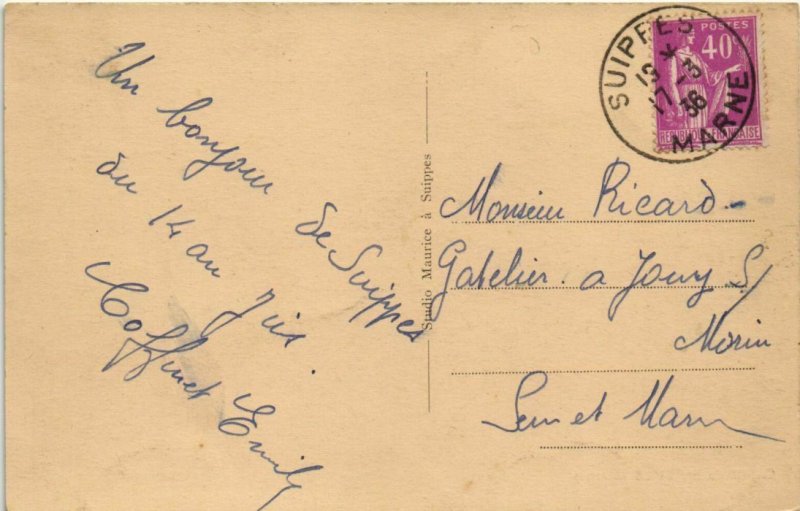 Un bonjour
de Suippes
du 14 au
Coffinet Emily
Studio Maurice à Suippes
SUIPPES
MARNE
19 *
17 -3
36
POSTES
40
REPUBLIQUE FRANÇAISE
Monsieur Ricard
Gatelier a Jouy S/
Morin
Seine et Marne